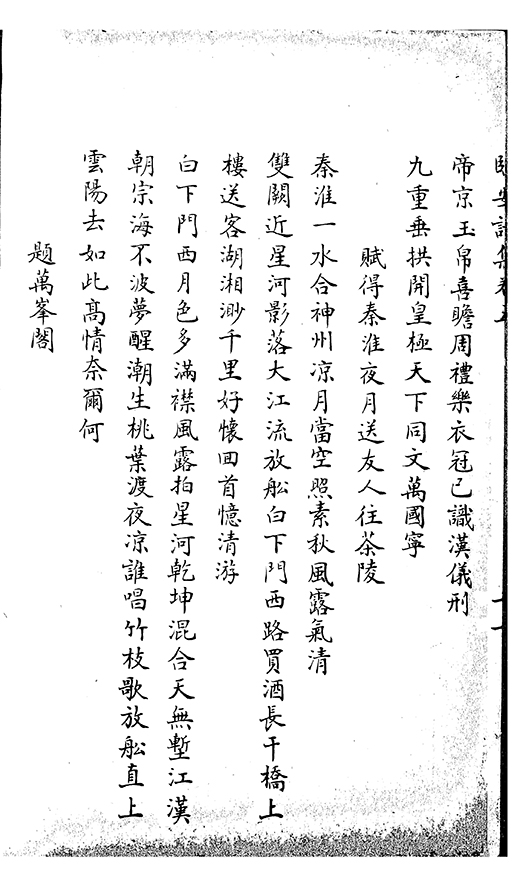 帝京玉帛喜瞻周禮樂衣冠已識漢儀刑
九重垂拱開皇極天下同文萬國寧
賦得秦淮夜月送友人往茶陵
秦淮一水合神州凉月當空照素秋風露氣清
雙闕近星河影落大江流放舩白下門西路買酒長干橋上
樓送客湖湘渺千里好懷回首憶清游
白下門西月色多滿襟風露拍星河乾坤混合天無塹江漢
朝宗海不波夢醒潮生桃葉渡夜凉誰唱竹枝歌放舩直上
雲陽去如此高情奈爾何
題萬峯閣